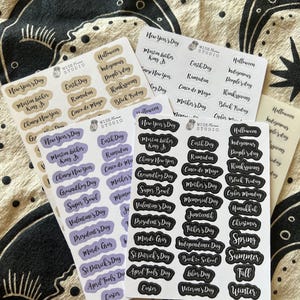 STUDIO
New Year's Day
Halloween
Martin Luther
King Jr.
Earth Day
Indigenous
People's Day
Chinese New Year
Ramadan
Thanksgiving
Cinco de Mayo
Black Friday
STUDIO
New Year's Day
Halloween
Martin Luther
King Jr.
Earth Day
Indigenous
People's Day
Ramadan
Thanksgiving
Cinco de Mayo
Black Friday
STUDIO
New Year's Day
Halloween
Martin Luther
King Jr.
Earth Day
Chinese New Year
Ramadan
Groundhog Day
Cinco de Mayo
Super Bowl
Mother's Day
Valentine's Day
President's Day
Mardi Gras
St Patrick's Day
April Fools Day
Easter
STUDIO
New Year's Day
Halloween
Martin Luther
King Jr.
Earth Day
Indigenous
People's Day
Chinese New Year
Ramadan
Thanksgiving
Groundhog Day
Cinco de Mayo
Black Friday
Super Bowl
Mother's Day
Cyber Monday
Valentine's Day
Memorial Day
Hanukkah
President's Day
Juneteenth
Christmas
Mardi Gras
Father's Day
Spring
St Patrick's Day
Independence Day
Summer
April Fools Day
Back to School
Fall
Easter
Labor Day
Winter
Veteran's Day